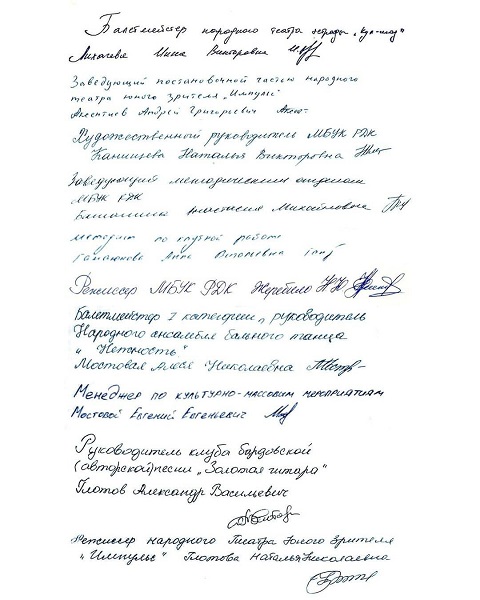 Балетмейстер народного театра эстрады
Лихачева Инна Викторовна
Заведующий постановочной частью народного
театра юного зрителя „Импульс"
Андрей Григорьевич
Художественный руководитель МБУК РДК
Канищева Наталья Викторовна
Заведующий методическим отделом
МБУК РДК
Анастасия Михайловна
методист по клубной работе
Анна
Режиссер МБУК РДК Жеребило Н Ю
Балетмейстер 1 категории, руководитель
Народного ансамбля бального танца
„Нежность"
Мостовая Алеся Николаевна
Менеджер по культурно-массовым мероприятиям
Мостовой Евгений Евгеньевич
Руководитель клуба бардовской
(авторской) песни „Золотая гитара"
Глотов Александр Васильевич
Режиссер народного Театра Юного Зрителя
"Импульс" Глотова Наталья Николаевна